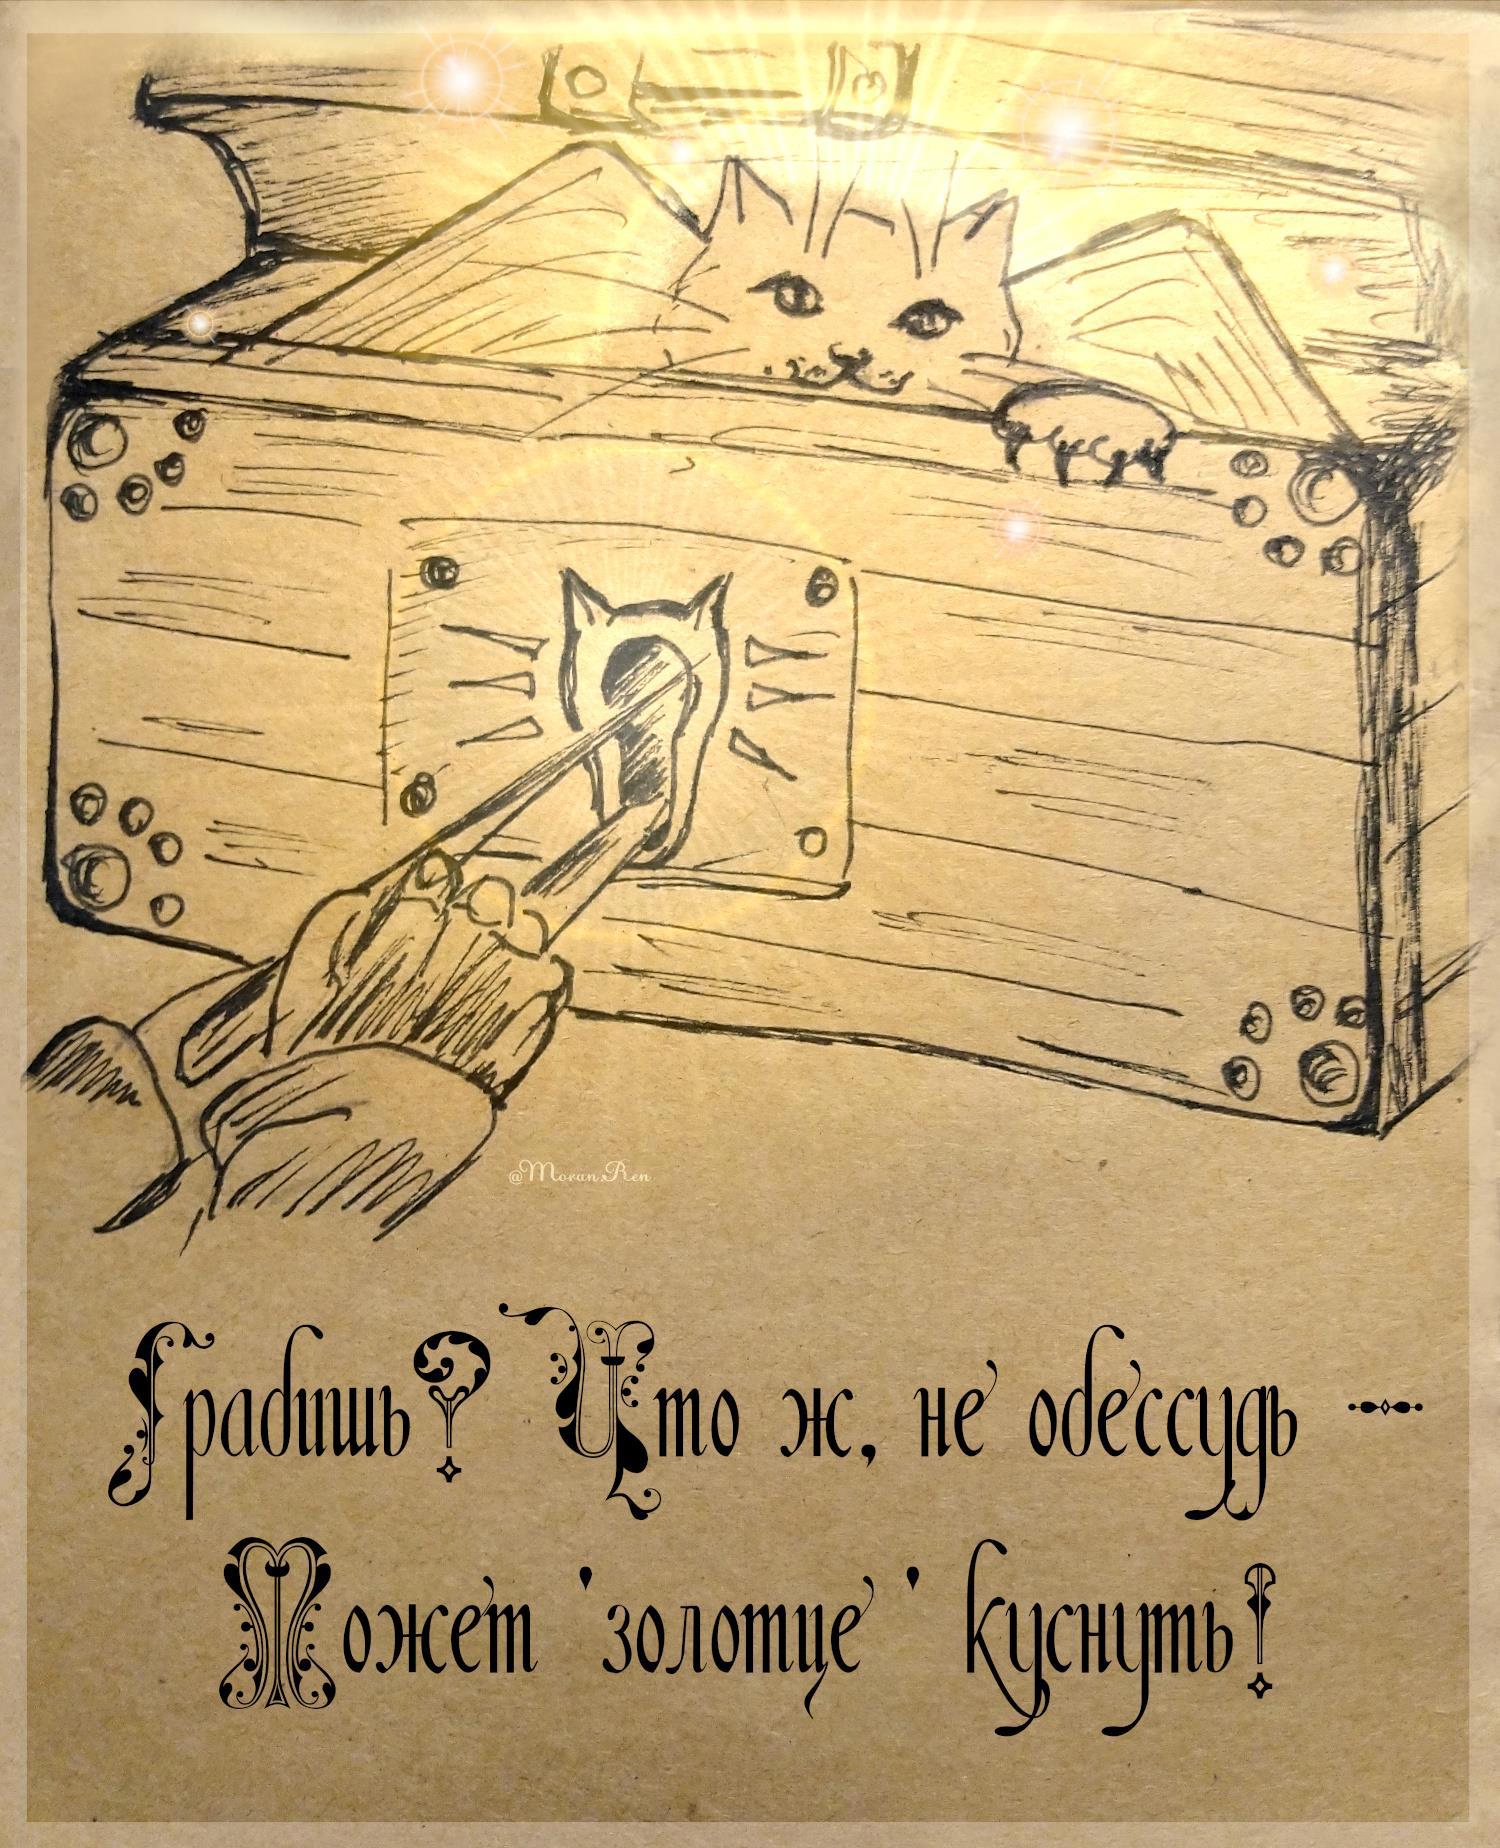 @MoranRen
Градишь? Что ж, не одессудь —
Может 'золотце' куснуть!